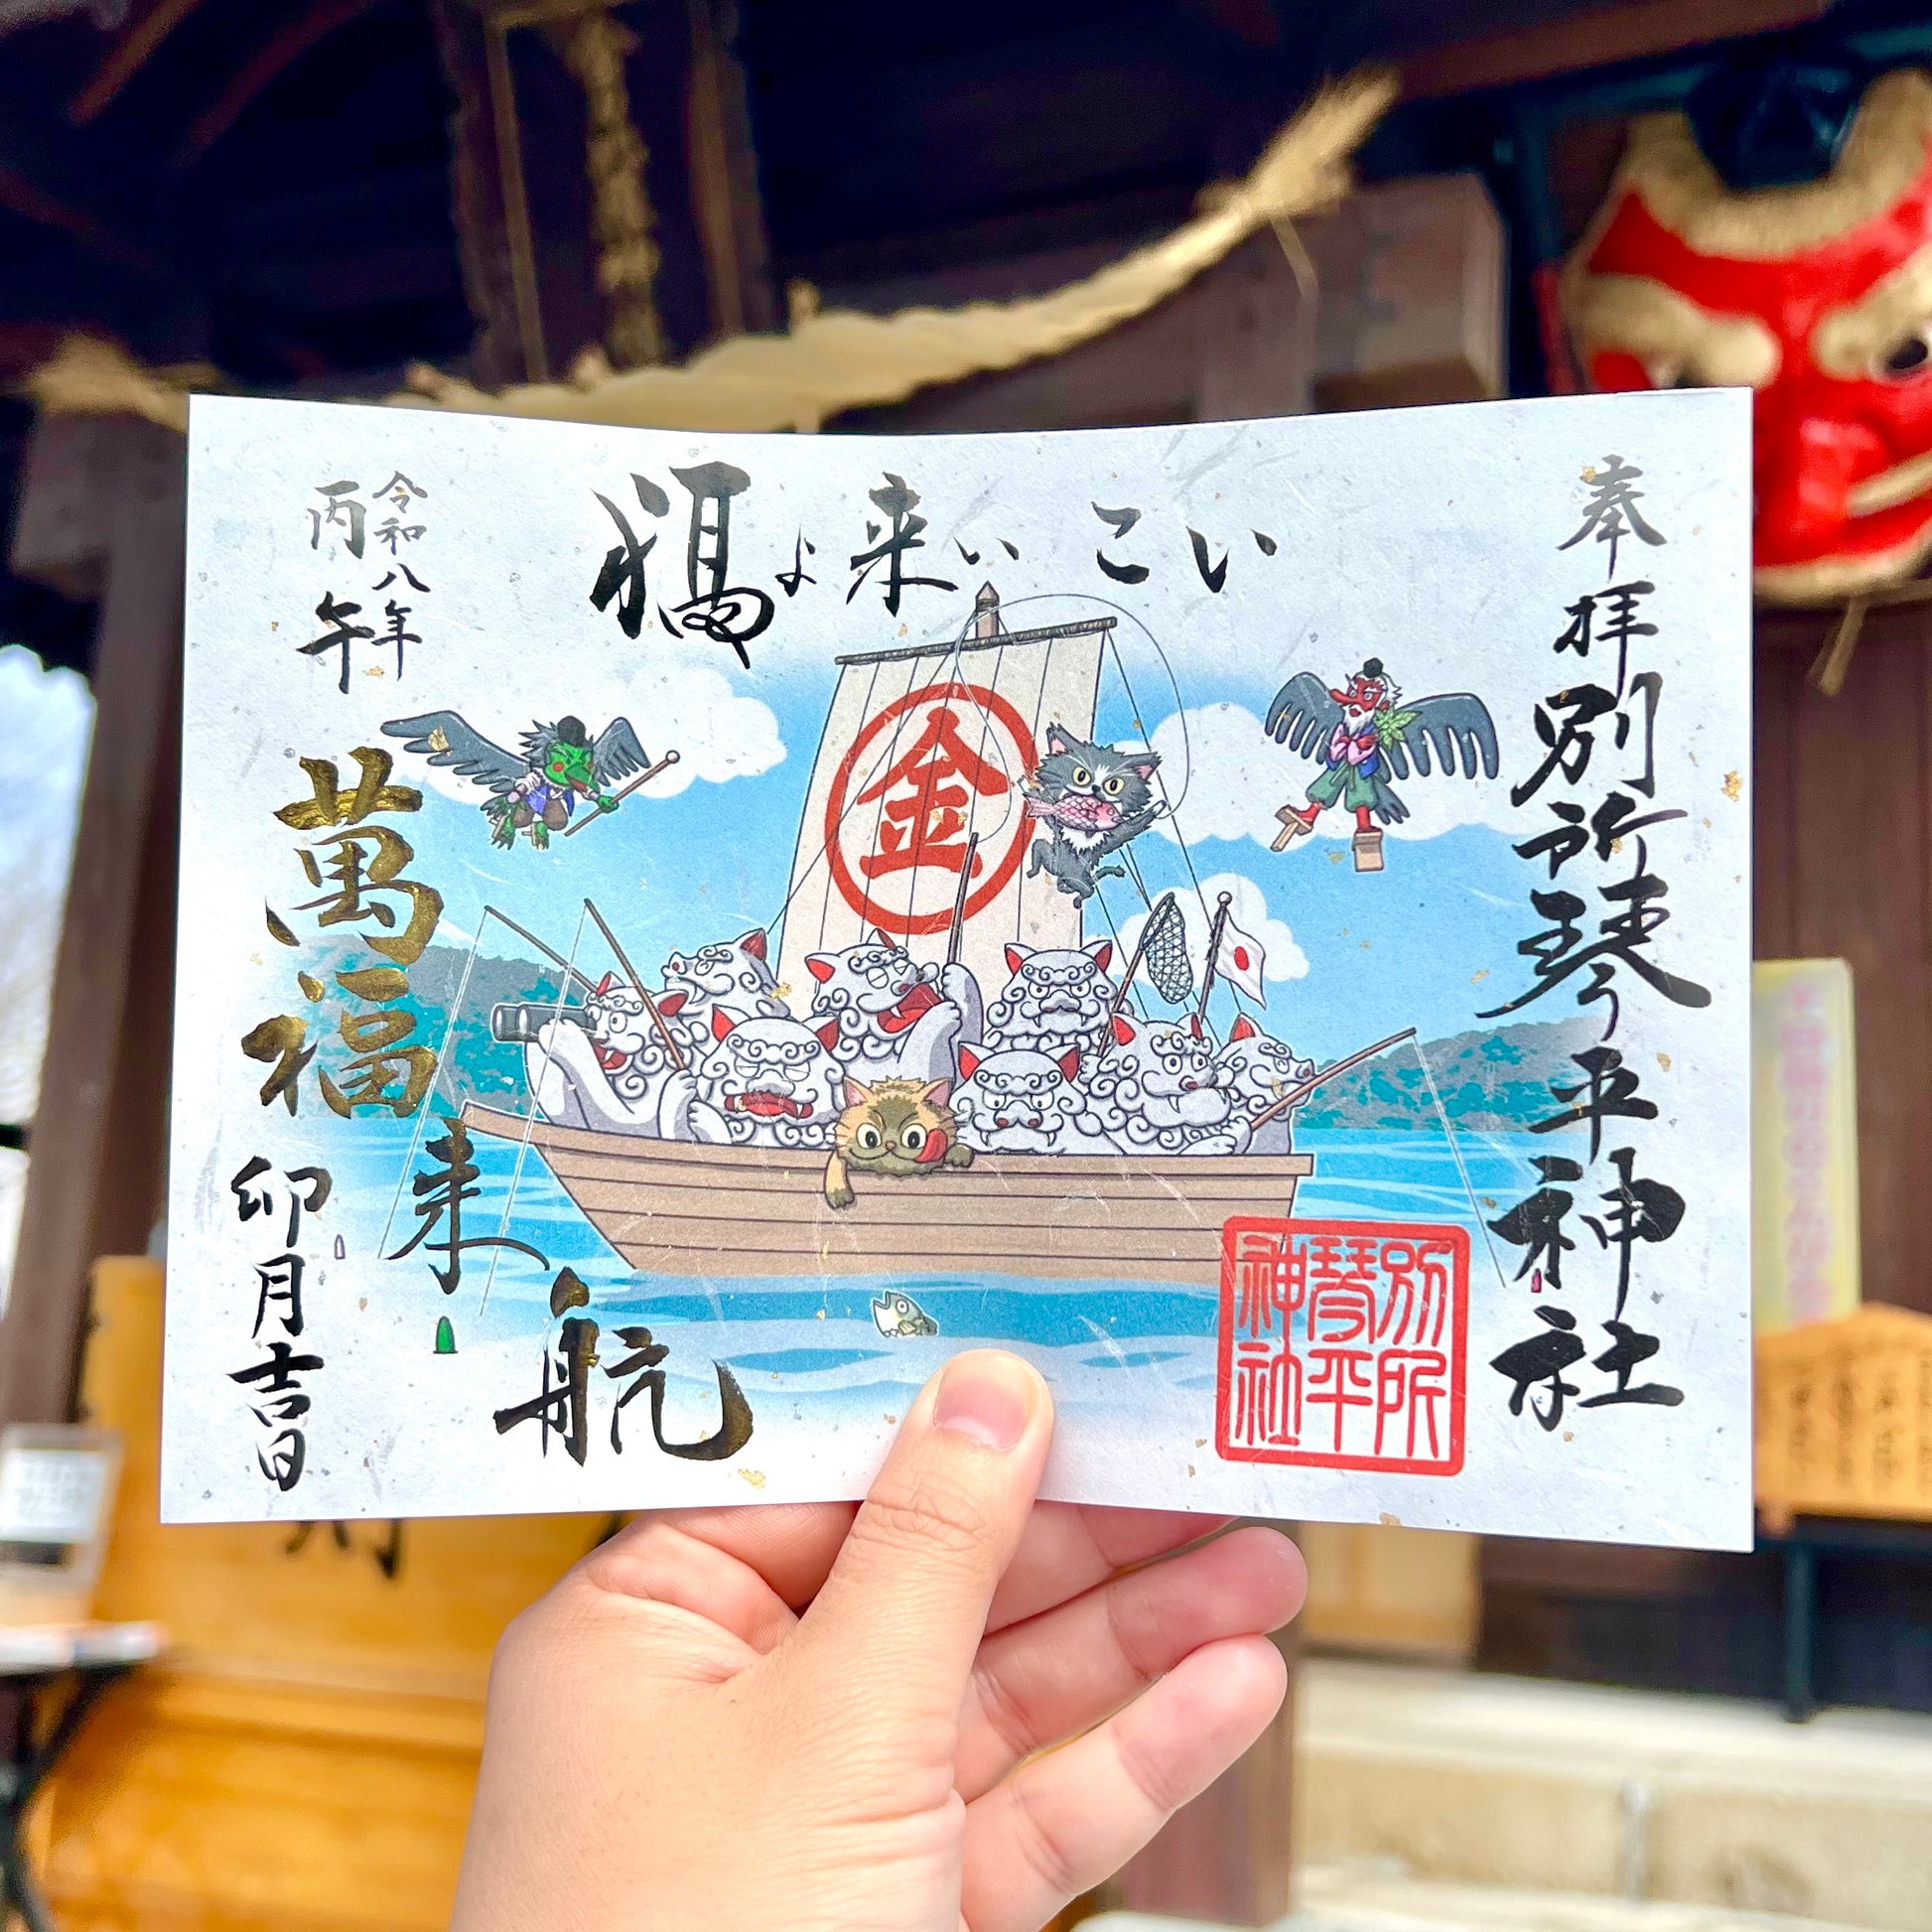 奉拝
別所琴平神社
福よ来いこい
金
別所
琴平
神社
令和八年
丙午
萬福来航
卯月吉日